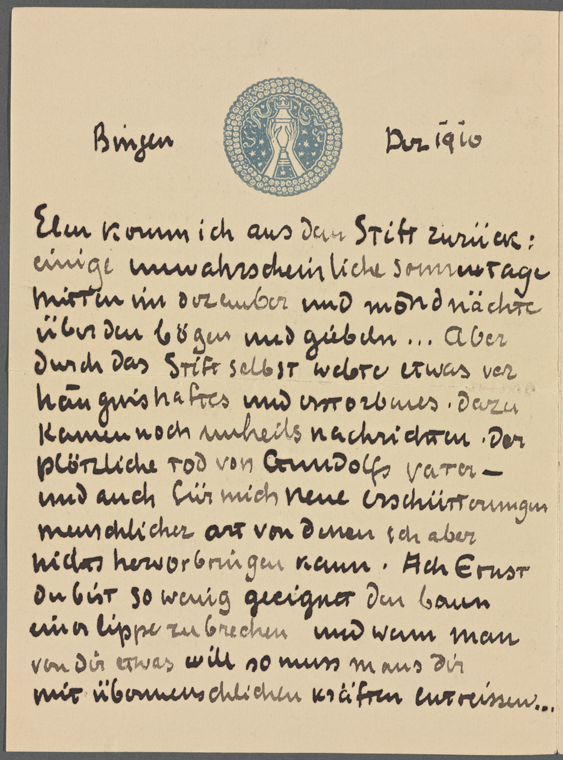 Bingen Dez 1910
Eben komm ich aus dem Stift zurück:
einige unwahrscheinliche sonnentage
mitten im dezember und mondnächte
über den bögen und giebeln ... Aber
durch das Stift selbst webte etwas ver
hängnishaftes und erstorbenes. Dazu
kamen noch unheilsnachrichten. Der
plötzliche tod von Gundolfs vater —
und auch für mich neue erschütterungen
menschlicher art von denen ich aber
nichts hervorbringen kann. Ach Ernst
du bist so wenig geeignet den bann
einer lippe zu brechen und wenn man
von dir etwas will so muss mans dir
mit übermenschlichen kräften entreissen...